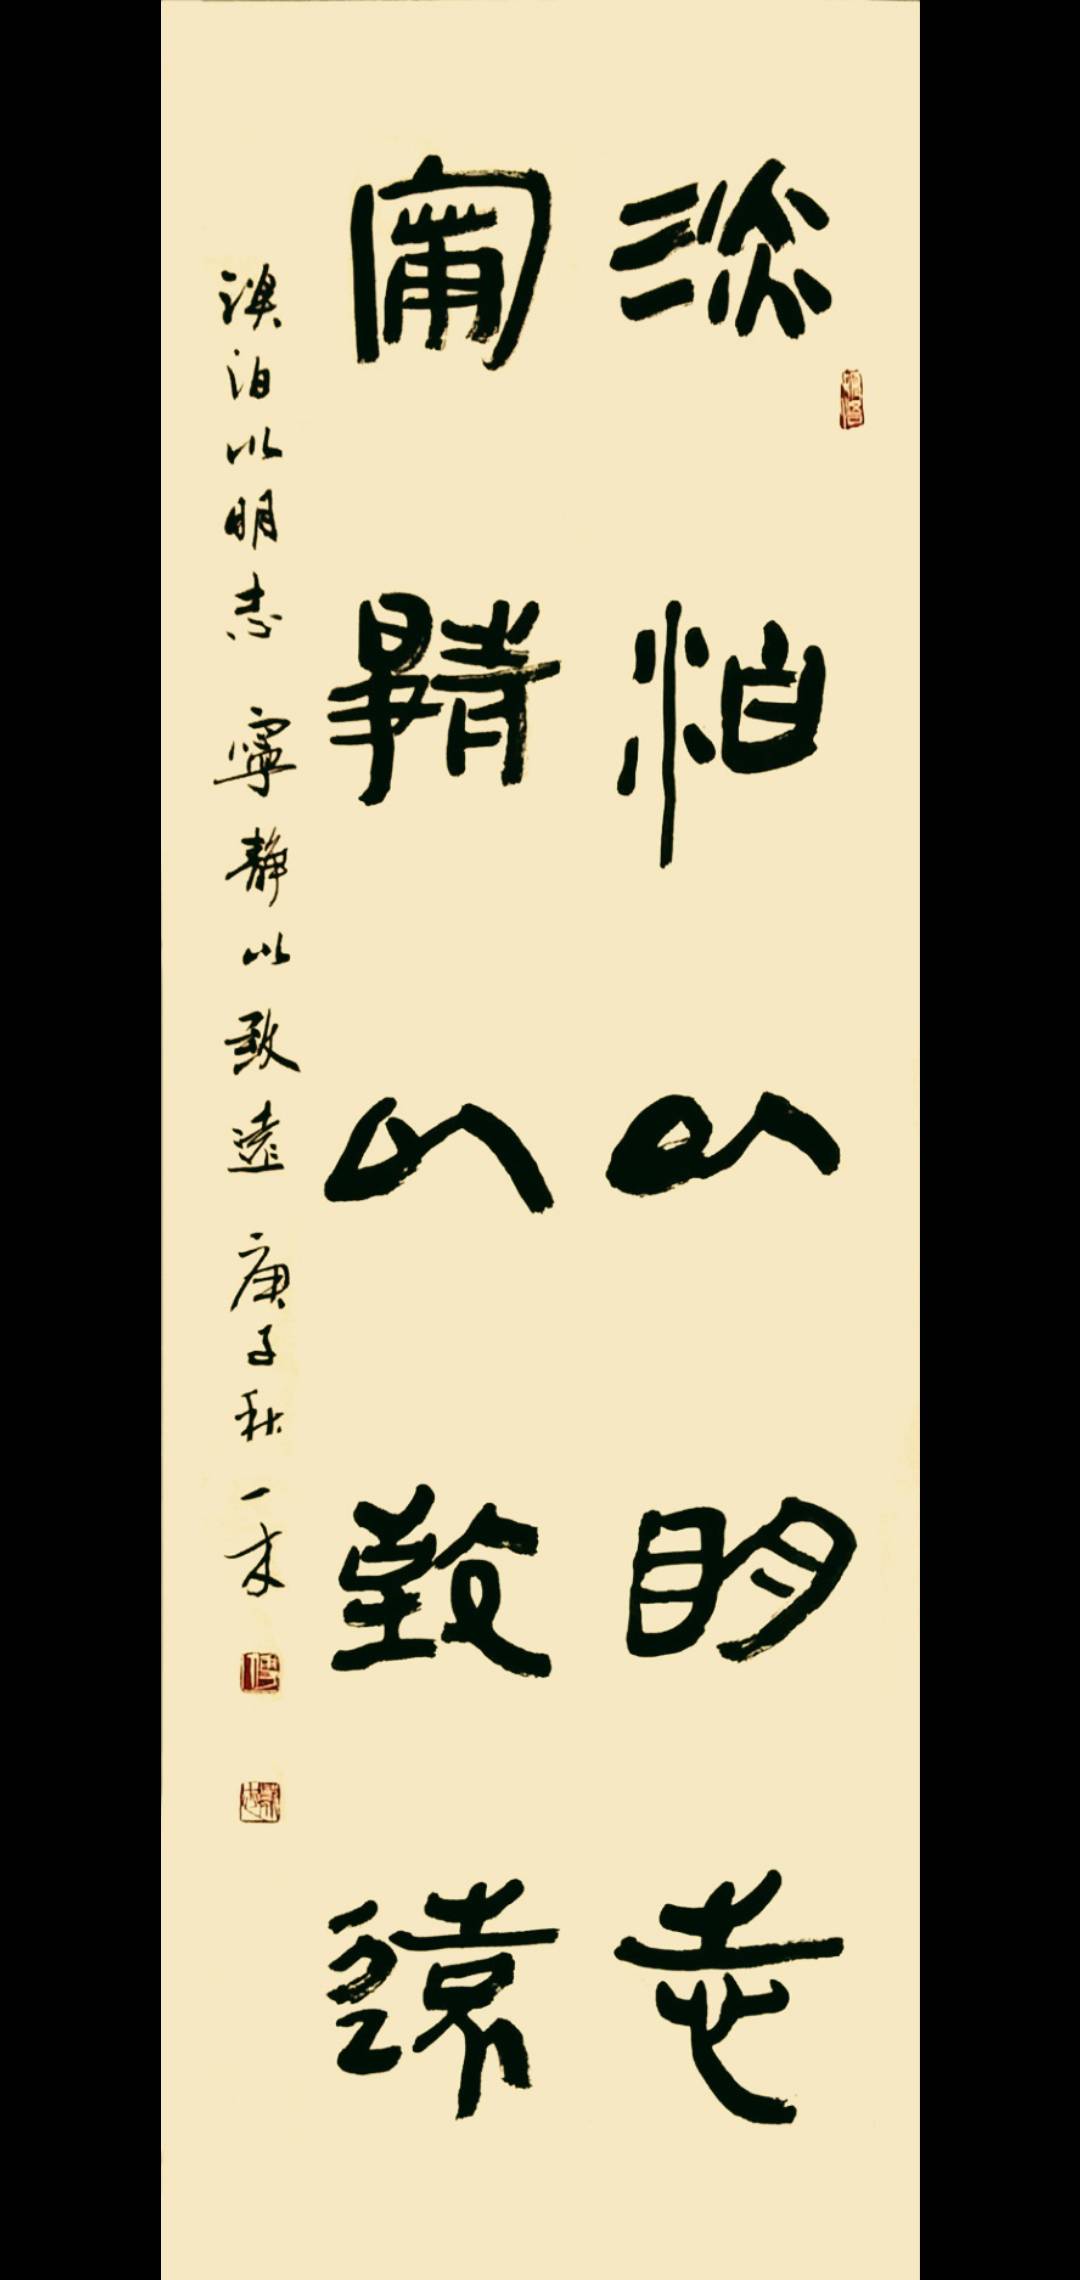 淡泊以明志
甯静以致遠
淡泊以明志 寧静以致遠 庚子秋 一